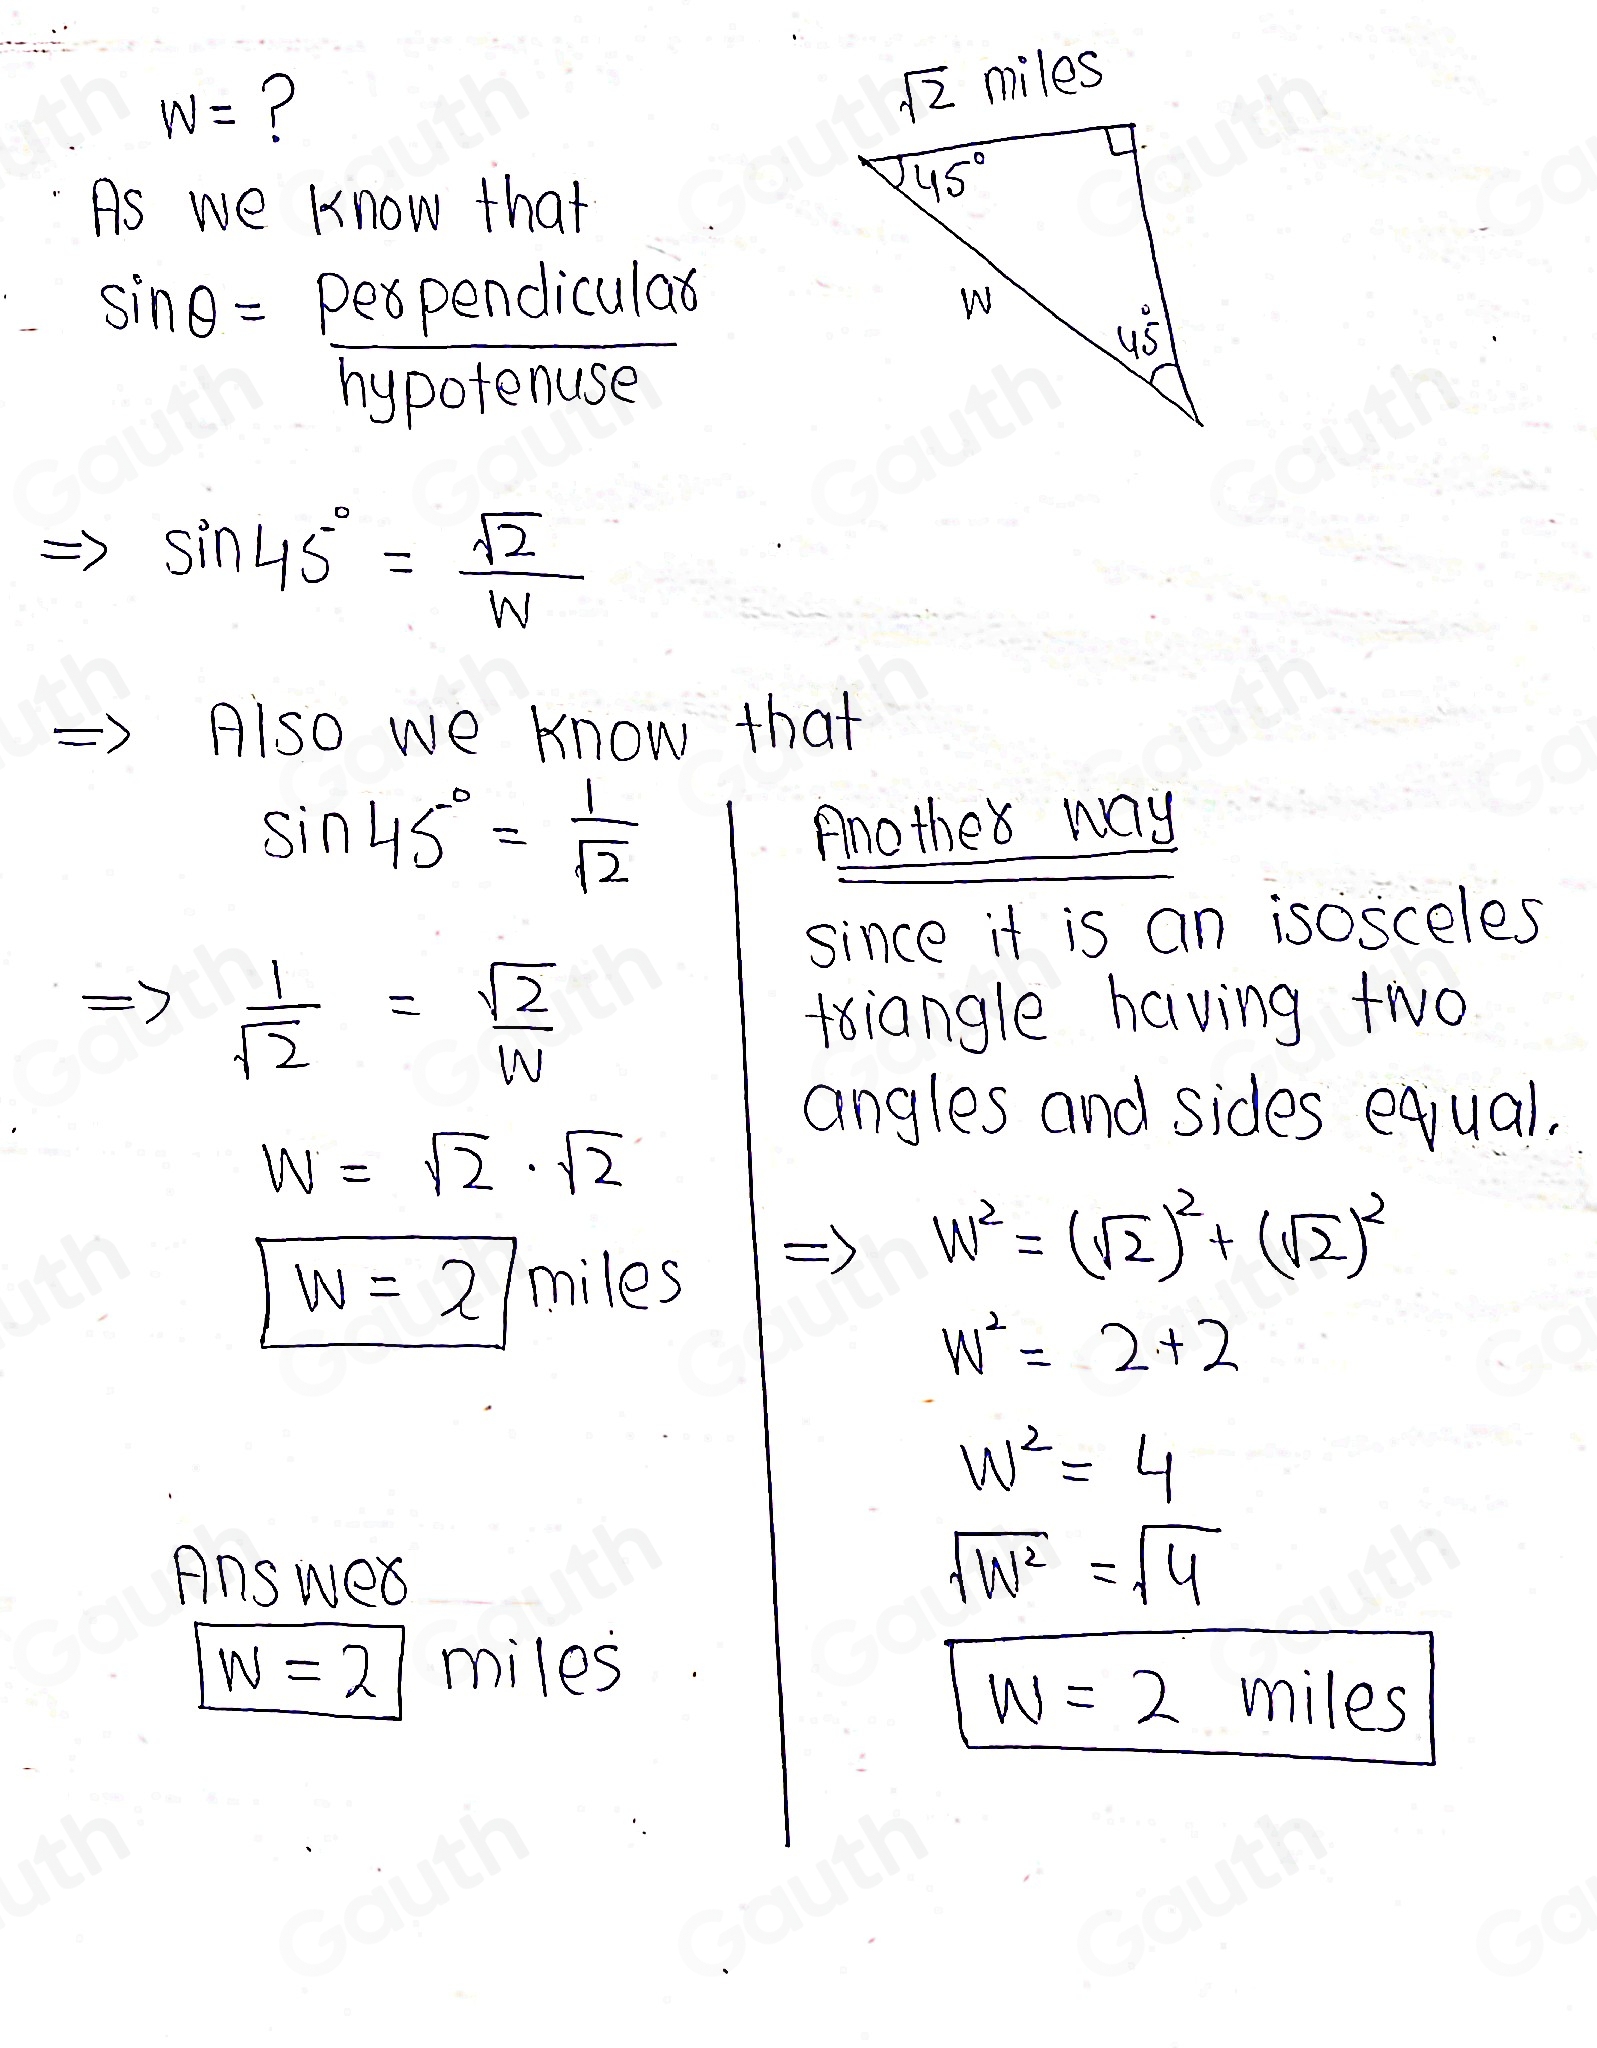 w = ?
√2 miles
45°
As we know that
w
45°
sinθ = perpendicular
hypotenuse
=> sin45° = √2
w
=> Also we know that
sin45° = 1
√2
=> 1 = √2
√2 w
w = √2 · √2
w = 2 miles
Answer
w = 2 miles
Another way
since it is an isosceles
triangle having two
angles and sides equal.
=> w² = (√2)² + (√2)²
w² = 2+2
w² = 4
√w² = √4
w = 2 miles
Gauth